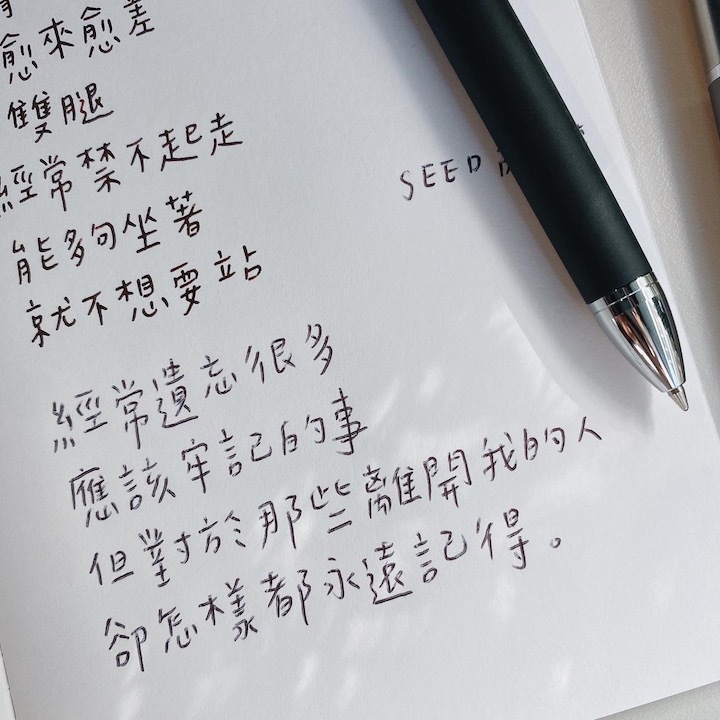 愈來愈差
雙腿
經常禁不起走
能夠坐著
就不想要站
經常遺忘很多
應該牢記的事
但對於那些離開我的人
卻怎樣都永遠記得。
SEED